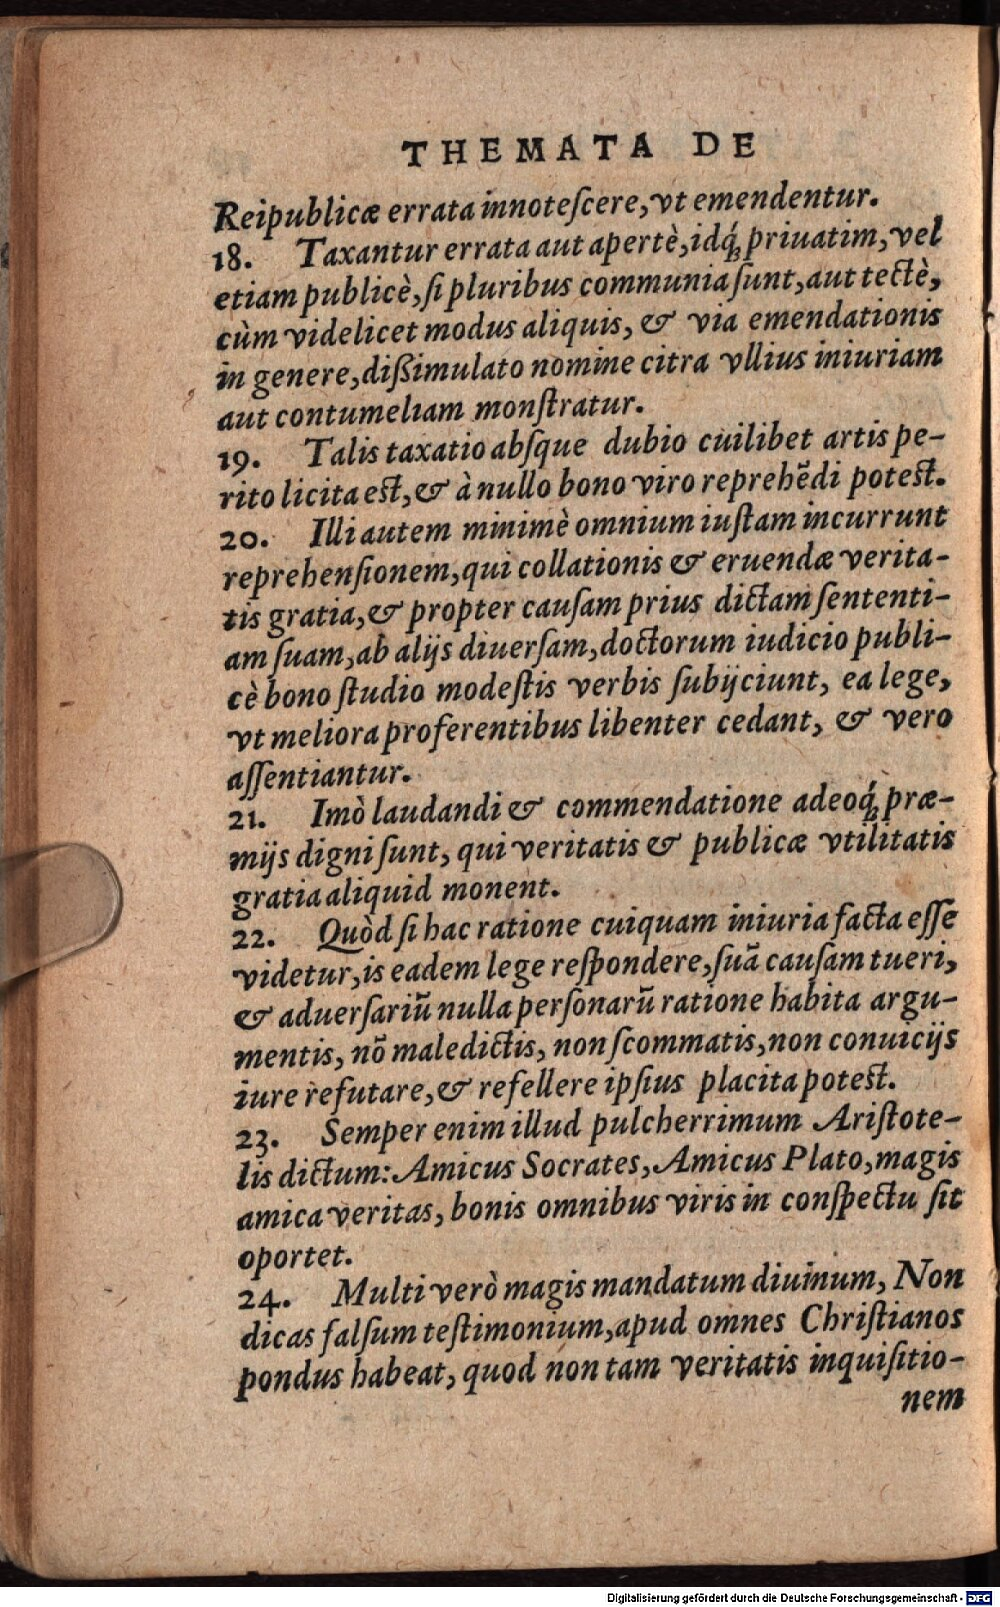 THEMATA DE
Reipublicæ errata innoteſcere, vt emendentur.
18. Taxantur errata aut apertè, idq́; priuatim, vel
etiam publicè, ſi pluribus communia ſunt, aut tectè,
cùm videlicet modus aliquis, & via emendationis
in genere, diſſimulato nomine citra vllius iniuriam
aut contumeliam monſtratur.
19. Talis taxatio abſque dubio cuilibet artis pe-
rito licita est, & à nullo bono viro reprehẽdi potest.
20. Illi autem minimè omnium iuſtam incurrunt
reprehenſionem, qui collationis & eruendæ verita-
tis gratia, & propter cauſam prius dictam ſententi-
am ſuam, ab alijs diuerſam, doctorum iudicio publi-
cè bono ſtudio modeſtis verbis ſubijciunt, ea lege,
vt meliora proferentibus libenter cedant, & vero
aſſentiantur.
21. Imò laudandi & commendatione adeoq́; præ-
mijs digni ſunt, qui veritatis & publicæ vtilitatis
gratia aliquid monent.
22. Quòd ſi hac ratione cuiquam iniuria facta eſſe
videtur, is eadem lege reſpondere, ſuã cauſam tueri,
& aduerſariũ nulla perſonarũ ratione habita argu-
mentis, nõ maledictis, non ſcommatis, non conuicijs
iure refutare, & refellere ipſius placita potest.
23. Semper enim illud pulcherrimum Ariſtote-
lis dictum: Amicus Socrates, Amicus Plato, magis
amica veritas, bonis omnibus viris in conſpectu ſit
oportet.
24. Multi verò magis mandatum diuinum, Non
dicas falſum teſtimonium, apud omnes Chriſtianos
pondus habeat, quod non tam veritatis inquiſitio-
nem
Digitalisierung gefördert durch die Deutsche Forschungsgemeinschaft - DFG